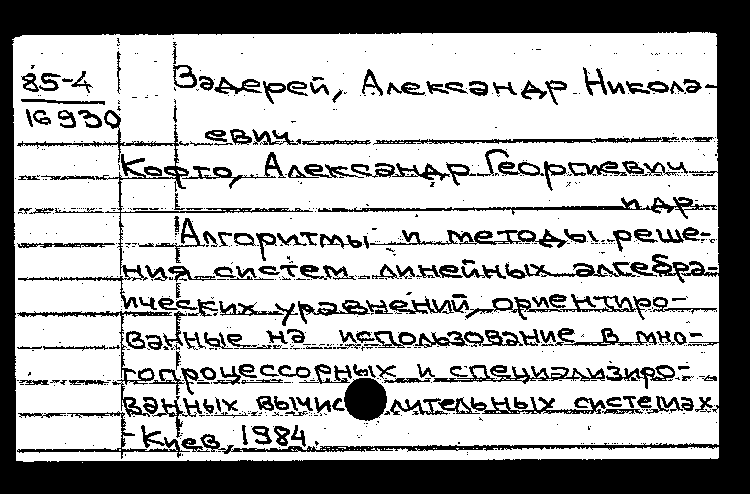 85-4
16930
Задерей, Александр Никола-
евич.
Кофто, Александр Георгиевич
и др.
Алгоритмы и методы реше-
ния систем линейных алгебра-
ических уравнений, ориентиро-
ванные на использование в мно-
гопроцессорных и специализиро-
ванных вычислительных системах.
- Киев, 1984.